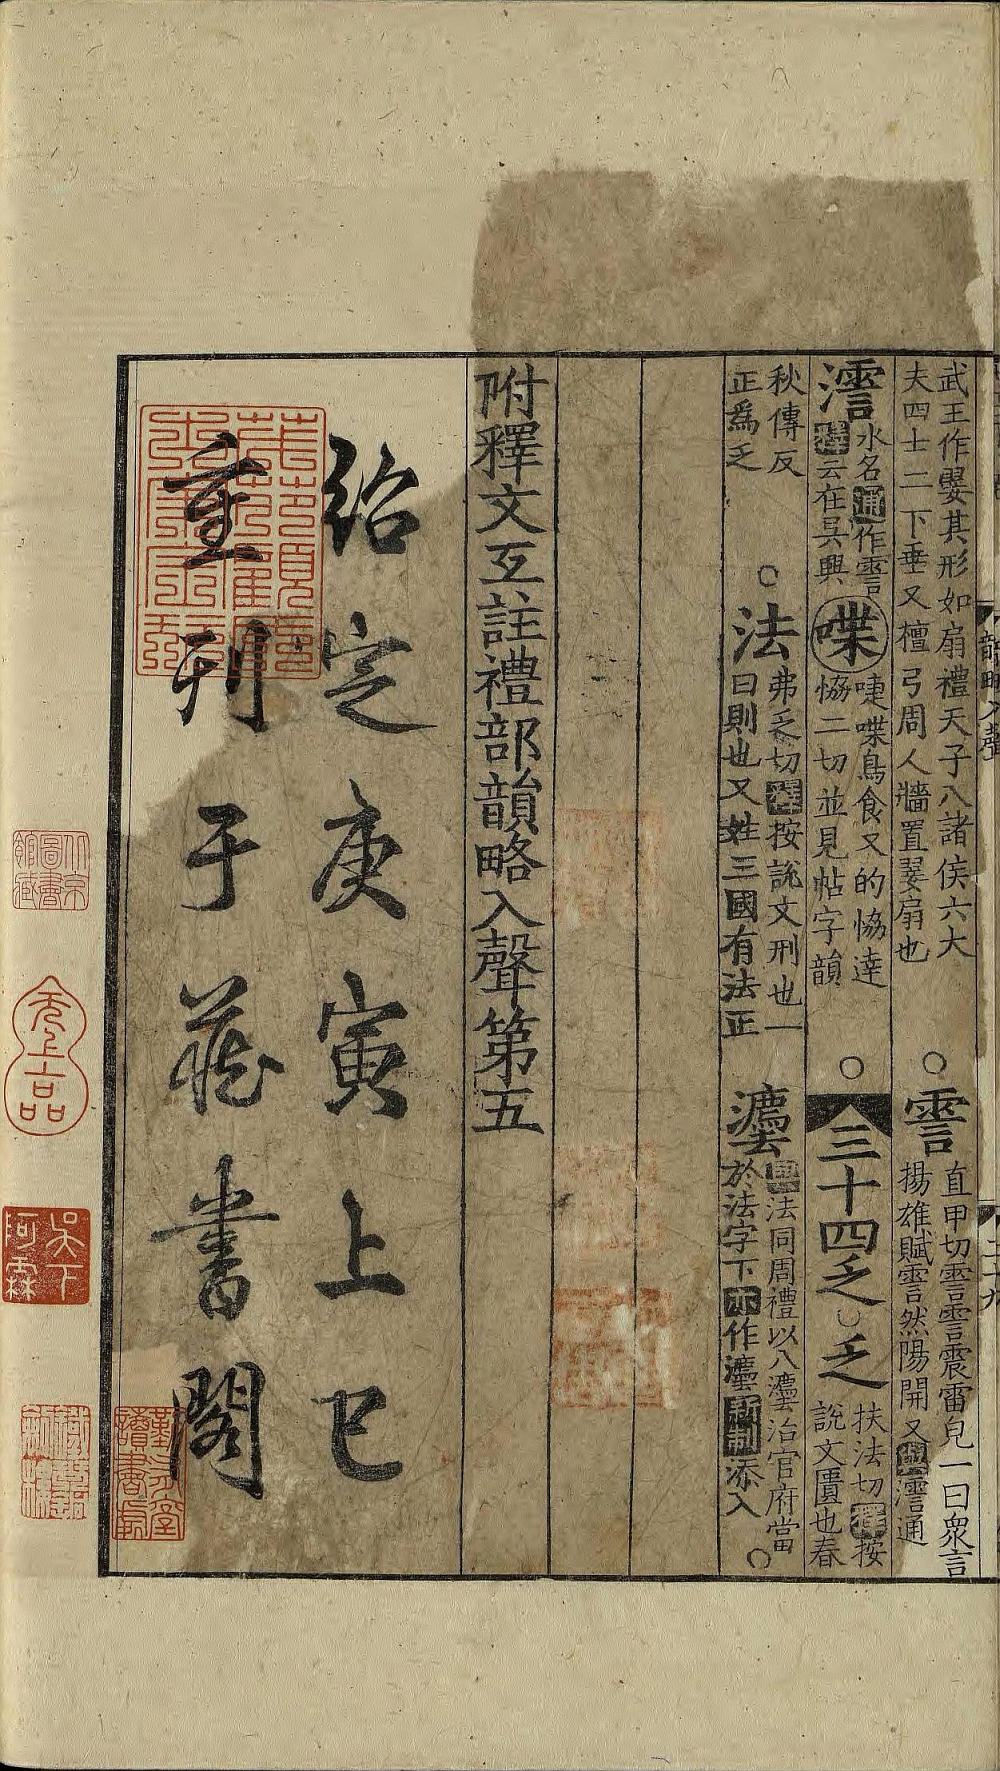 武王作翣其形如扇禮天子八諸侯六大
夫四士二下垂又檀弓周人牆置翣扇也
○霅
直甲切霅霅震雷皃一曰衆言
揚雄賦霅然陽開又與澘通
水名通作霅
釋云在吳興
喋
啑喋鳥食又的恊達
恊二切並見帖字韻
○三十四乏○乏
扶法切釋按
說文匱也春
秋傳反
正爲乏
○法
弗乏切釋按說文刑也一
曰則也又姓三國有法正
灋
與法同周禮以八灋治官府當
於法字下亦作灋新制添入○
附釋文互註禮部韻略入聲第五
紹定庚寅上巳
重刊于藏書閣
韻略入聲
三十九
北京圖書館藏
吳下阿霖
謹深堂讀書記